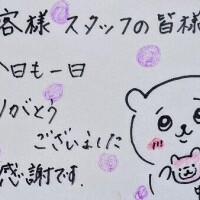 客様 スタッフの皆様
今日も一日
りがとう
ございました
感謝です.